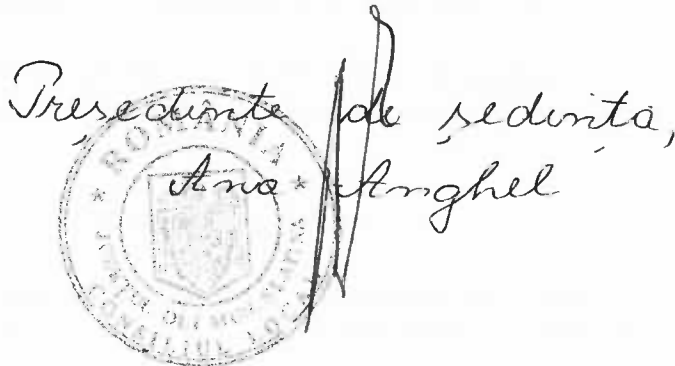 Președinte de ședința,
Ana Anghel
* ROMÂNIA *
CONSILIUL LOCAL